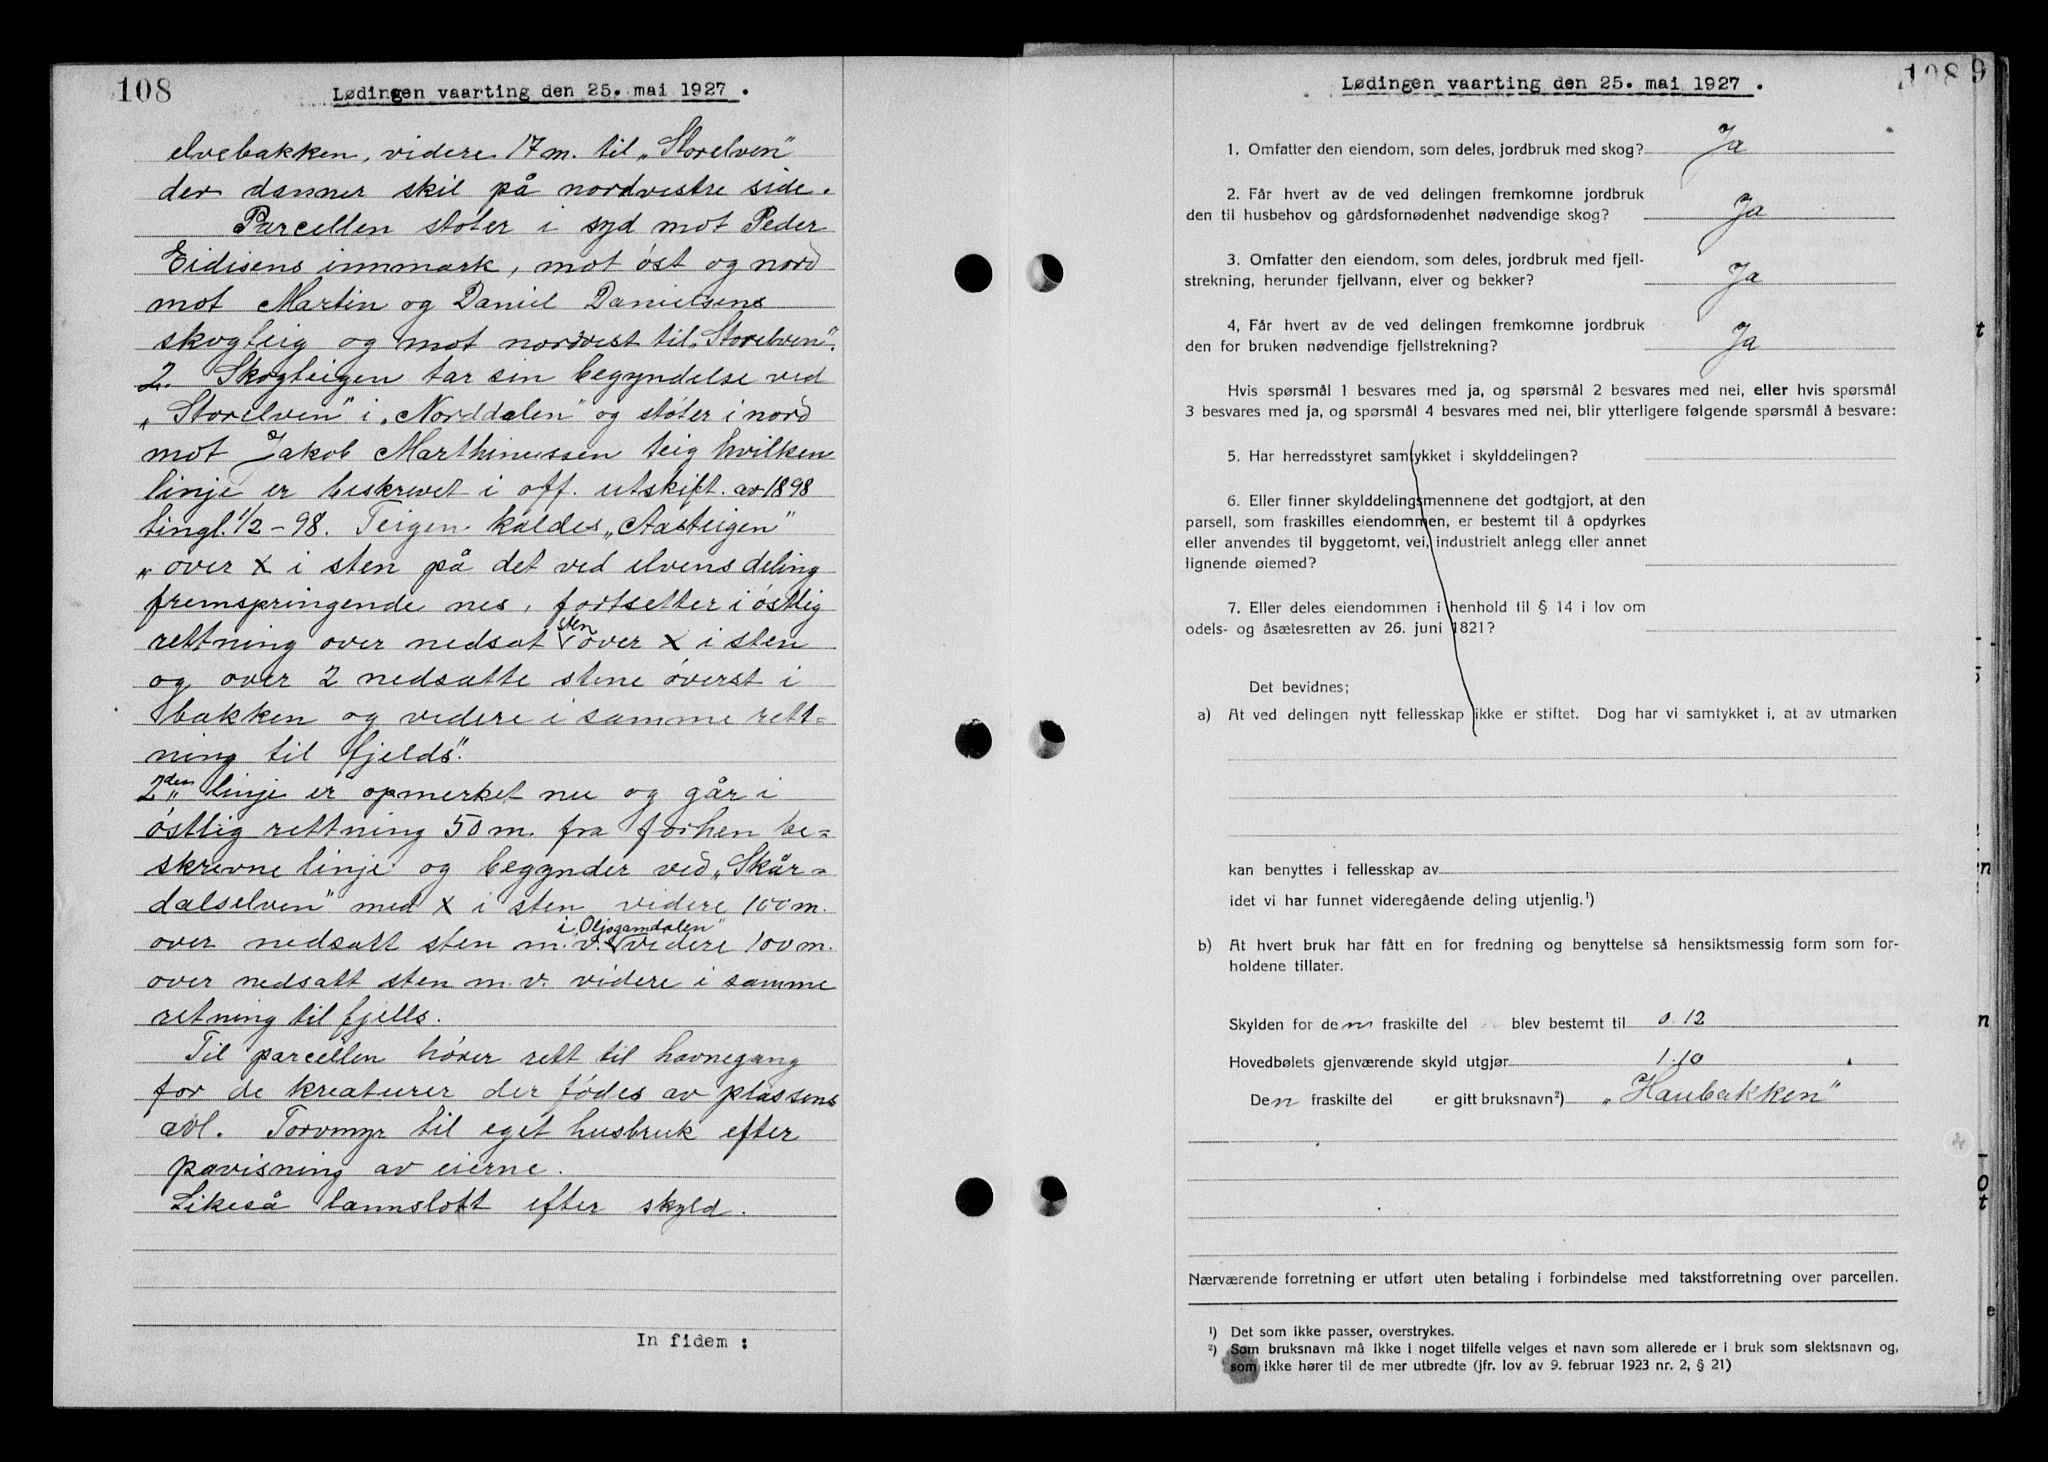 108
Lødingen vaarting den 25. mai 1927.
elvebakken, videre 17 m. til „Storelven"
der danner skil på nordvestre side.
Parcellen støter i syd mot Peder
Eidisens innmark, mot øst og nord
mot Martin og Daniel Danielsens
skogteig og mot nordvest til „Storelven".
2. Skogteigen tar sin begyndelse ved
„Storelven" i „Norddalen" og støter i nord
mot Jakob Marthinussen teig hvilken
linje er beskrevet i off. utskift. av 1898
tingl. 1/2-98. Teigen kaldes „Aasteigen"
„over x i sten på det ved elvens deling
fremspringende nes, fortsetter i østlig
rettning over nedsat sten over x i sten
og over 2 nedsatte stene øverst i
bakken og videre i samme rett-
ning til fjelds".
2den linje er opmerket nu og går i
østlig rettning 50 m. fra forhen be-
skrevne linje og begynder ved „Skår-
dalselven" med x i sten videre 100 m.
over nedsatt sten m.v. i „Oljogamdalen" videre 100 m.
over nedsatt sten m.v. videre i samme
retning til fjells.
Til parcellen hører rett til havnegang
for de kreaturer der fødes av plassens
avl. Torvmyr til eget husbruk efter
påvisning av eierne.
Likeså lannslott efter skyld.
In fidem :
Lødingen vaarting den 25. mai 1927.
108
9
1. Omfatter den eiendom, som deles, jordbruk med skog? Ja
2. Får hvert av de ved delingen fremkomne jordbruk
den til husbehov og gårdsfornødenhet nødvendige skog? Ja
3. Omfatter den eiendom, som deles, jordbruk med fjell-
strekning, herunder fjellvann, elver og bekker? Ja
4, Får hvert av de ved delingen fremkomne jordbruk
den for bruken nødvendige fjellstrekning? Ja
Hvis spørsmål 1 besvares med ja, og spørsmål 2 besvares med nei, eller hvis spørsmål
3 besvares med ja, og spørsmål 4 besvares med nei, blir ytterligere følgende spørsmål å besvare:
5. Har herredsstyret samtykket i skylddelingen?
6. Eller finner skylddelingsmennene det godtgjort, at den
parsell, som fraskilles eiendommen, er bestemt til å opdyrkes
eller anvendes til byggetomt, vei, industrielt anlegg eller annet
lignende øiemed?
7. Eller deles eiendommen i henhold til § 14 i lov om
odels- og åsætesretten av 26. juni 1821?
Det bevidnes;
a) At ved delingen nytt fellesskap ikke er stiftet. Dog har vi samtykket i, at av utmarken
kan benyttes i fellesskap av
idet vi har funnet videregående deling utjenlig.¹)
b) At hvert bruk har fått en for fredning og benyttelse så hensiktsmessig form som for-
holdene tillater.
Skylden for den fraskilte del blev bestemt til 0.12
Hovedbølets gjenværende skyld utgjør 1.10
Den fraskilte del er gitt bruksnavn²) „Haubakken"
Nærværende forretning er utført uten betaling i forbindelse med takstforretning over parcellen.
¹) Det som ikke passer, overstrykes.
²) Som bruksnavn må ikke i noget tilfelle velges et navn som allerede er i bruk som slektsnavn og,
som ikke hører til de mer utbredte (jfr. lov av 9. februar 1923 nr. 2, § 21)